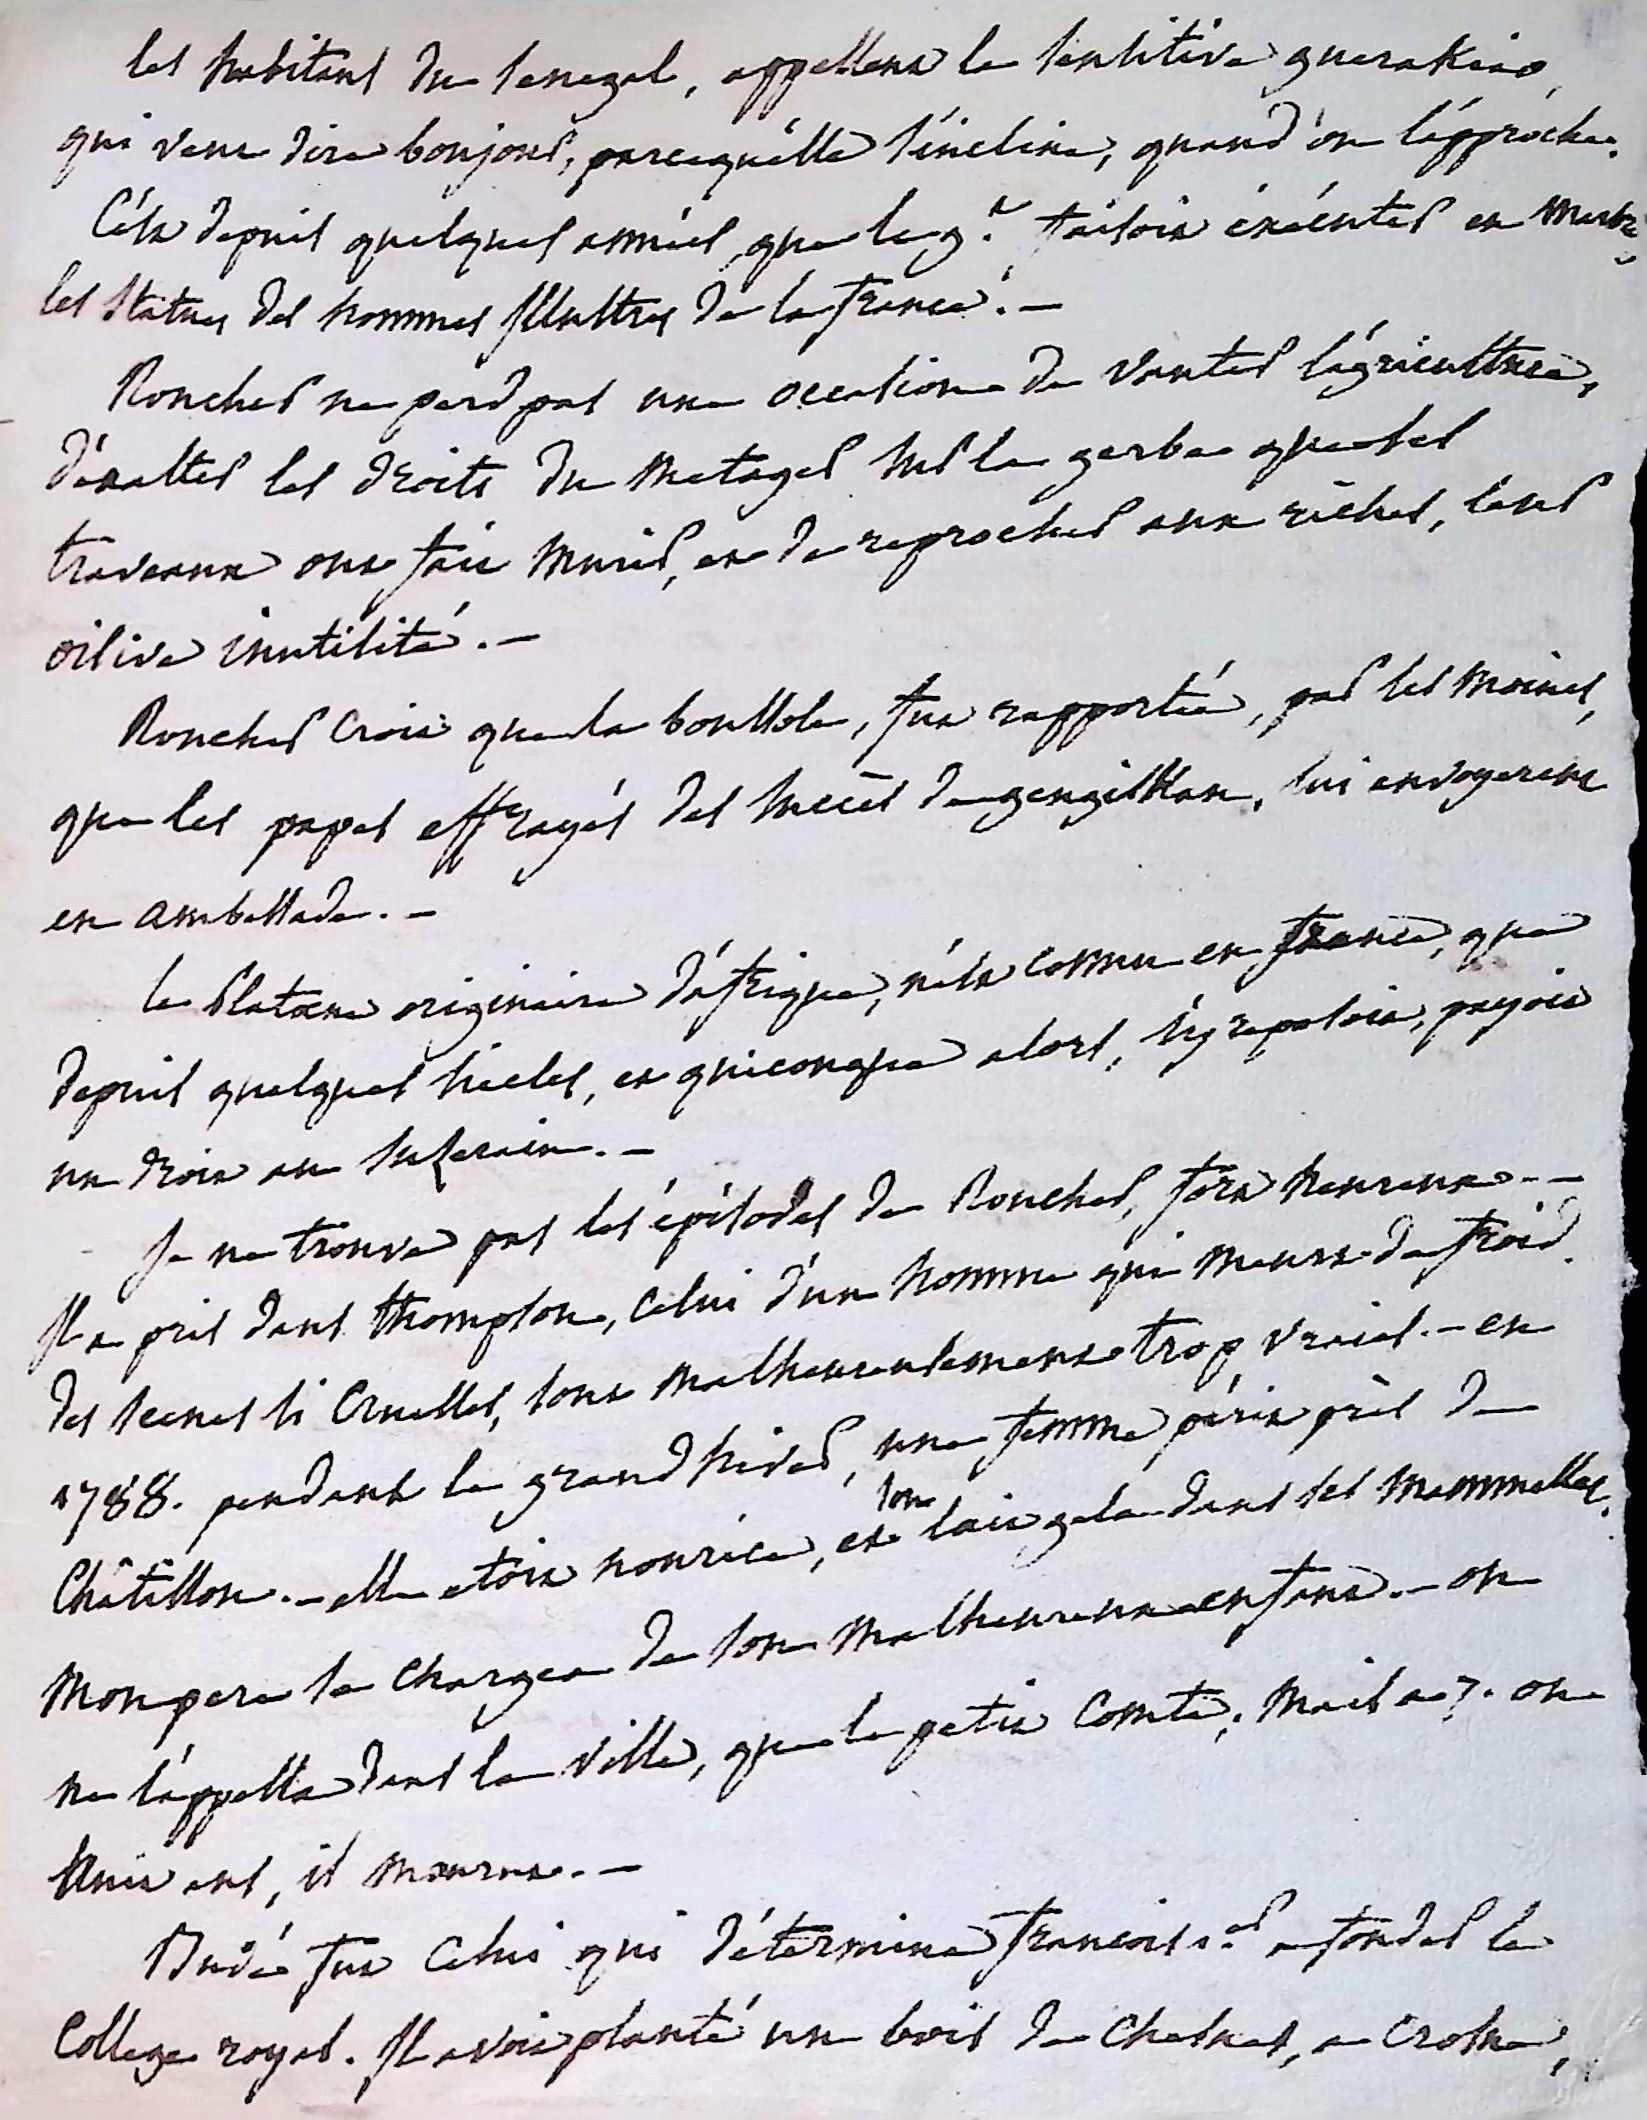 les habitans du senegal, appellent la sensitive guerakiao,
qui veut dire bonjour, parcequ'elle s'incline, quand on l'approche.
C'est depuis quelques années, que le g.t faisoit exécuter en marbre
les statues des hommes illustres de la france. –
Roucher ne perd pas une occasion de vanter l'agriculture,
d'exalter les droits du métayer sur la gerbe que ses
travaux ont fait murir, et de reprocher aux riches, leur
oisive inutilité. –
Roucher croit que la boussole, fut rapportée, par les moines,
que les papes effrayés des succès de gengiskan, lui envoyerent
en ambassade. –
le Platane originaire d'afrique, n'est connu en france, que
depuis quelques siecles, et quiconque alors, s'y reposoit, payoit
un droit au suzerain. –
Je ne trouve pas les épisodes de Roucher, fort heureux – –
Il a pris dans thompson, celui d'un homme qui meurt de froid.
des scenes si cruelles, sont malheureusement trop vraies. – en
1788. pendant le grand hiver, une femme périt près de
Châtillon. – elle etoit nourice, et son lait gela dans ses mammelles.
Mon pere se chargea de son malheureux enfant. – on
ne l'appella dans la ville, que le petit Comte; mais a 7. ou
huit ans, il mourut. –
Budé fut celui qui détermina francois 1.er a fonder le
College royal. Il avoit planté un bois de chesnes, a Crosne,